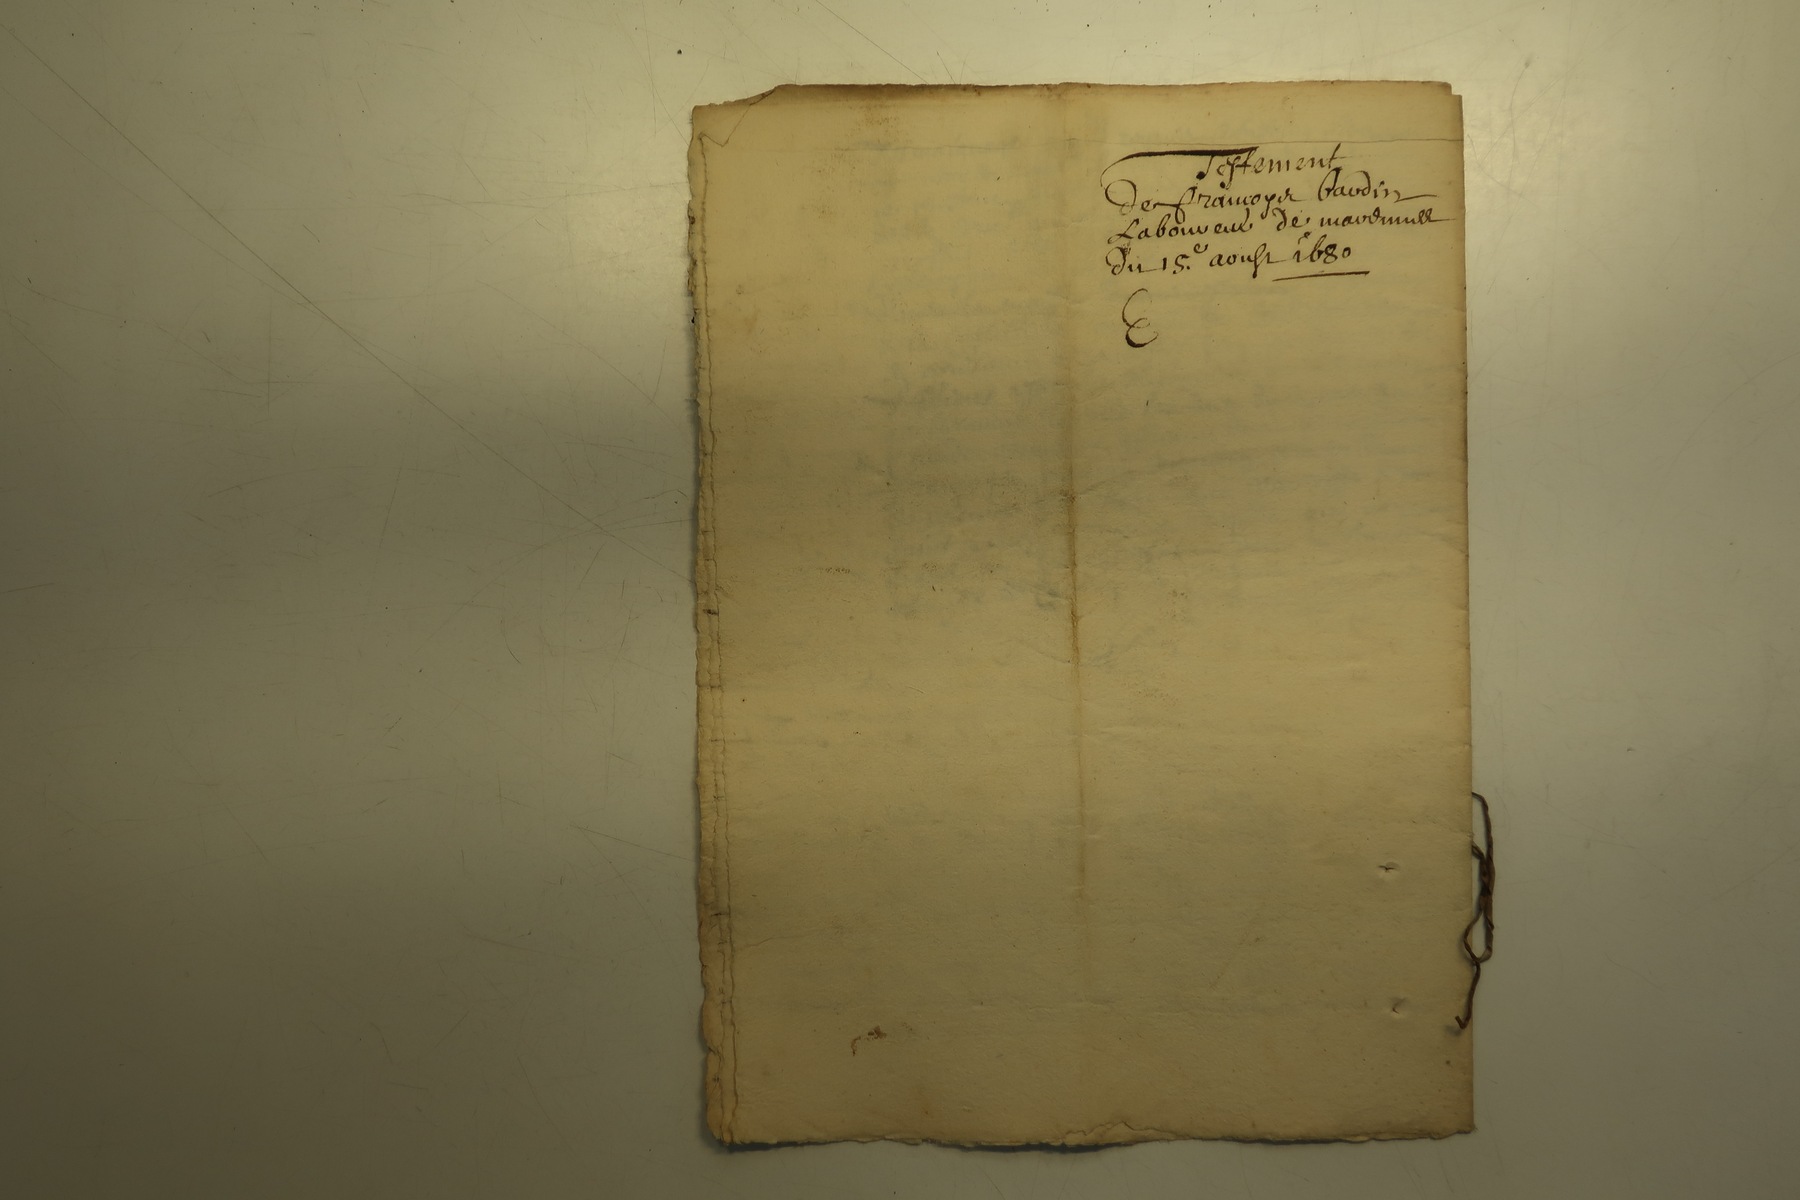 Testement
De françoys baudin
Laboureur de
Du 15.e aoust 1680
E